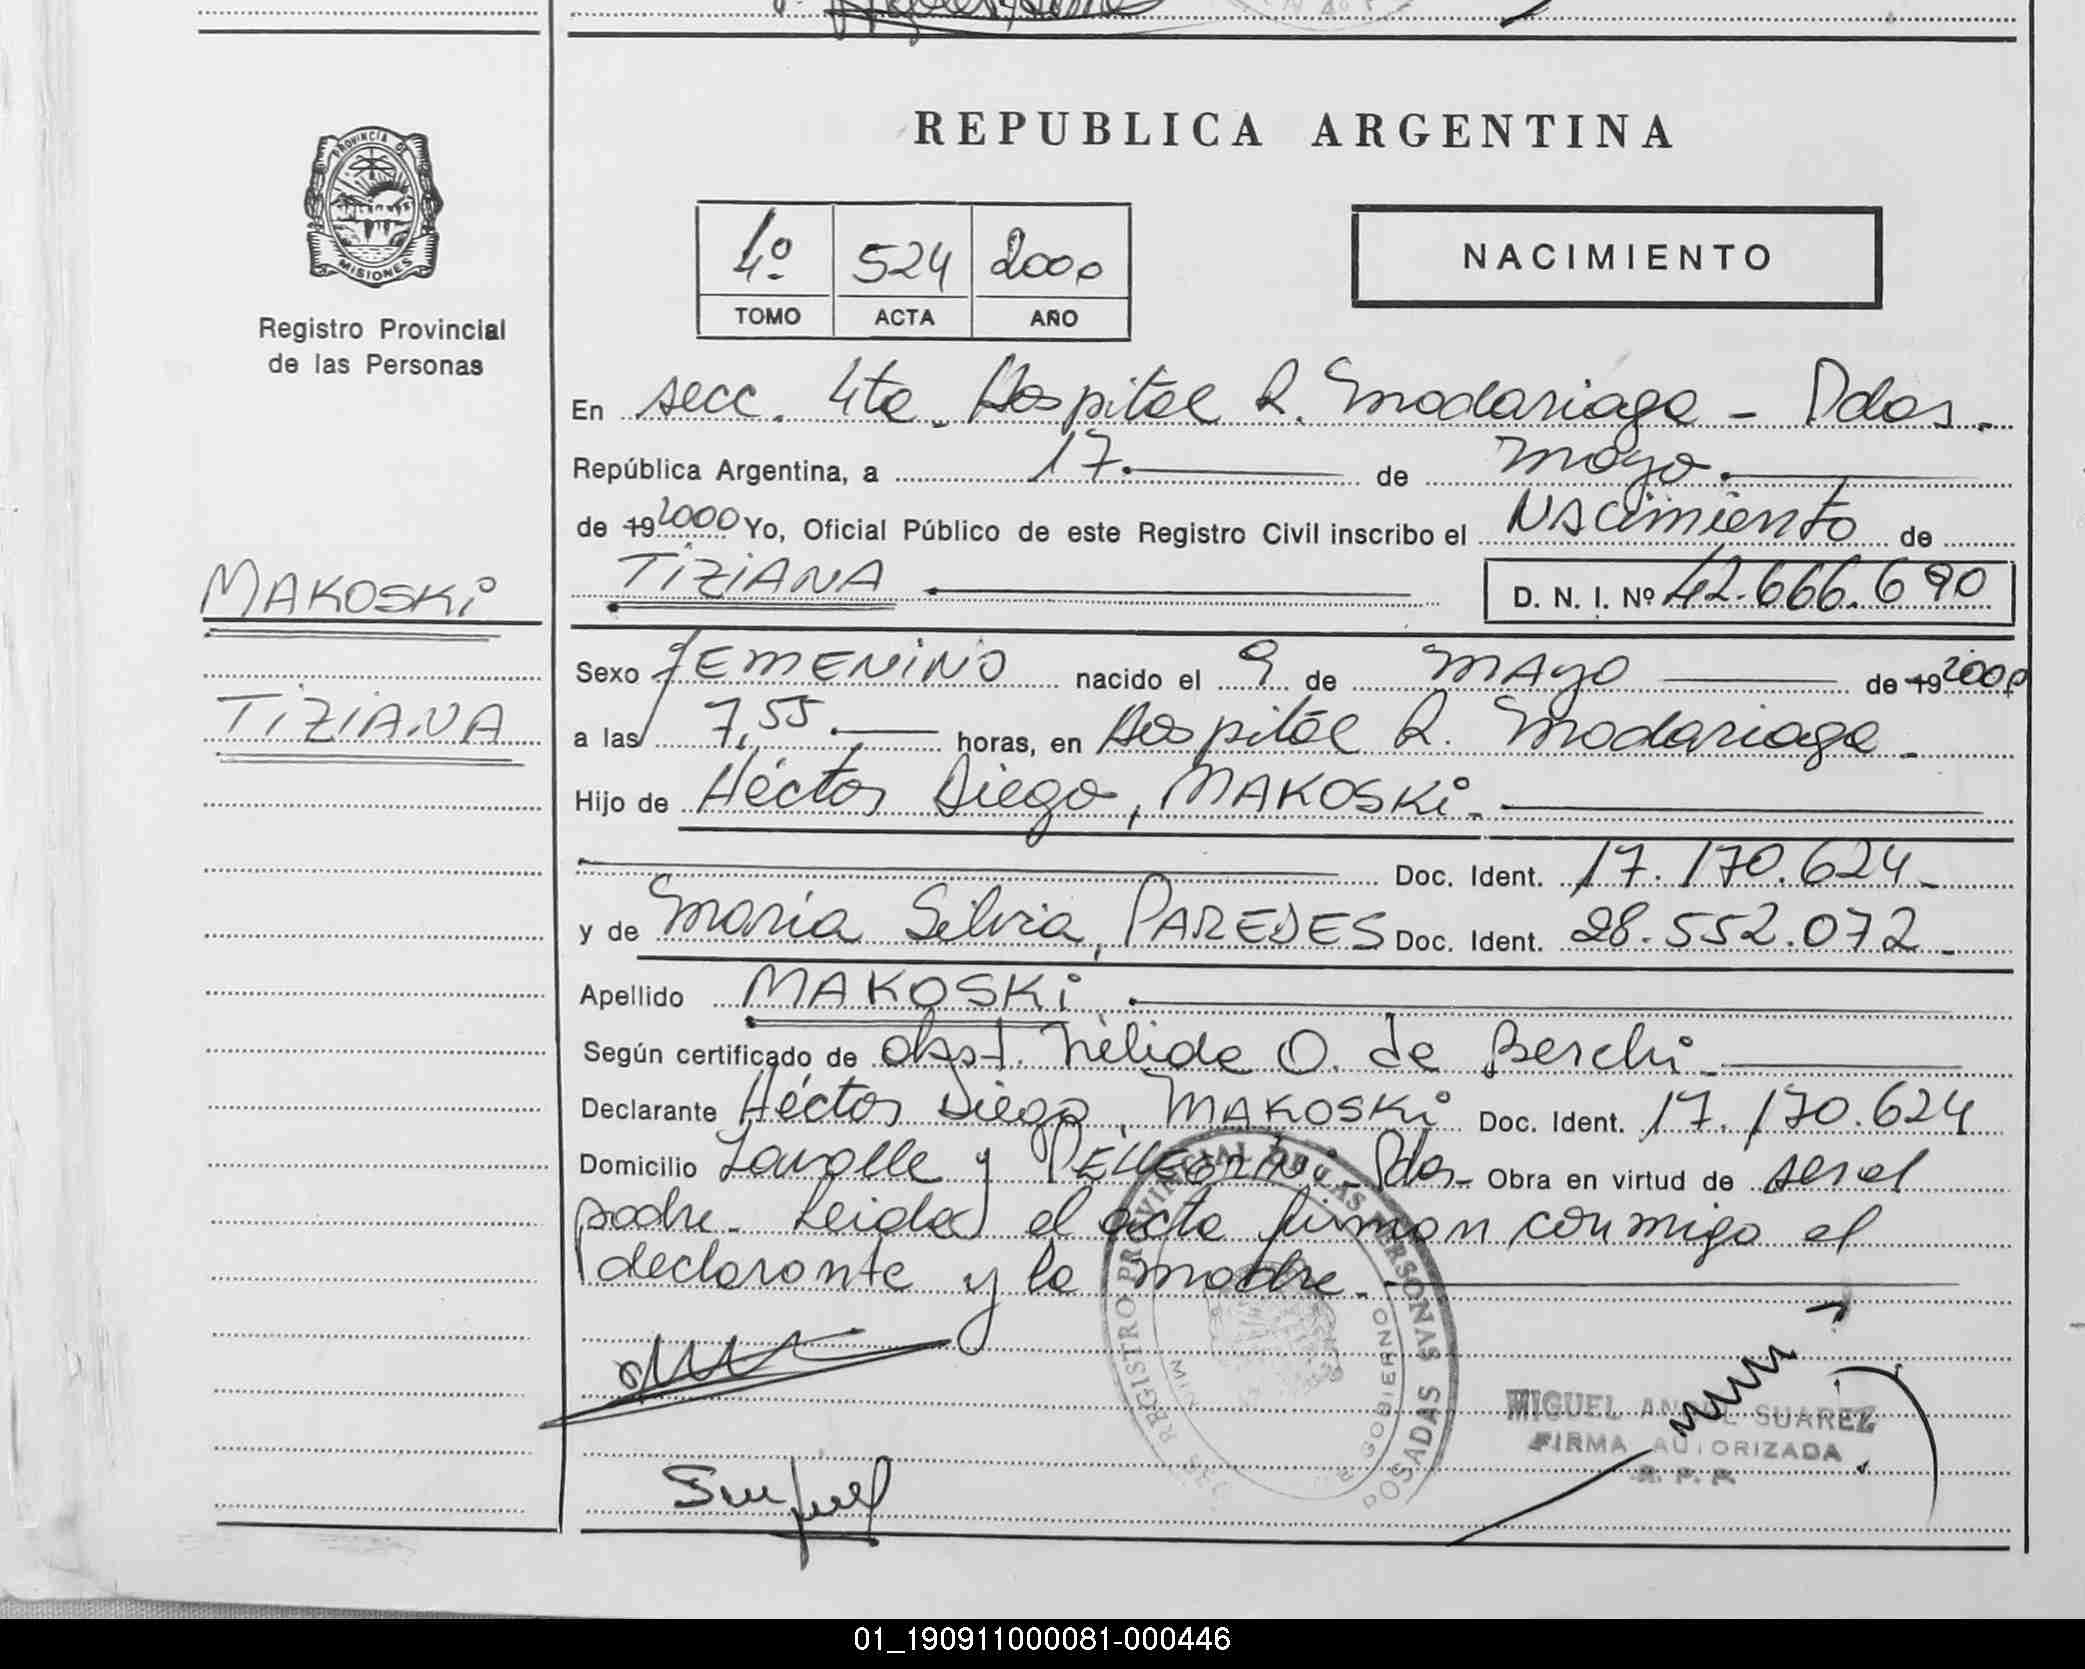 REPUBLICA ARGENTINA
PROVINCIA D
MISIONES
Registro Provincial
de las Personas
4º 524 2000
TOMO ACTA AÑO
NACIMIENTO
En secc. 4ta. Hospital R. Madariaga - Pdas.
República Argentina, a 17. de Mayo.
de 19 2000 Yo, Oficial Público de este Registro Civil inscribo el Nacimiento de
TIZIANA D. N. I. Nº 42.666.690
MAKOSKI
TIZIANA
Sexo FEMENINO nacido el 9 de MAYO de 19 2000
a las 7,55 horas, en Hospital R. Madariaga.
Hijo de Héctor Diego, MAKOSKI.
Doc. Ident. 17.170.624
y de María Silvia, PAREDES Doc. Ident. 28.552.072
Apellido MAKOSKI
Según certificado de obst. Nélida O. de
Declarante Héctor Diego, MAKOSKI Doc. Ident. 17.170.624
Domicilio Lavalle y PELLEGRINI - Pdas. Obra en virtud de ser el
padre. Leida el acta firman conmigo el
declarante y la madre.
REGISTRO PROVINCIAL DE LAS PERSONAS
GOBIERNO
POSADAS
MIGUEL ANGEL SUAREZ
FIRMA AUTORIZADA
R. P. P.
01_190911000081-000446